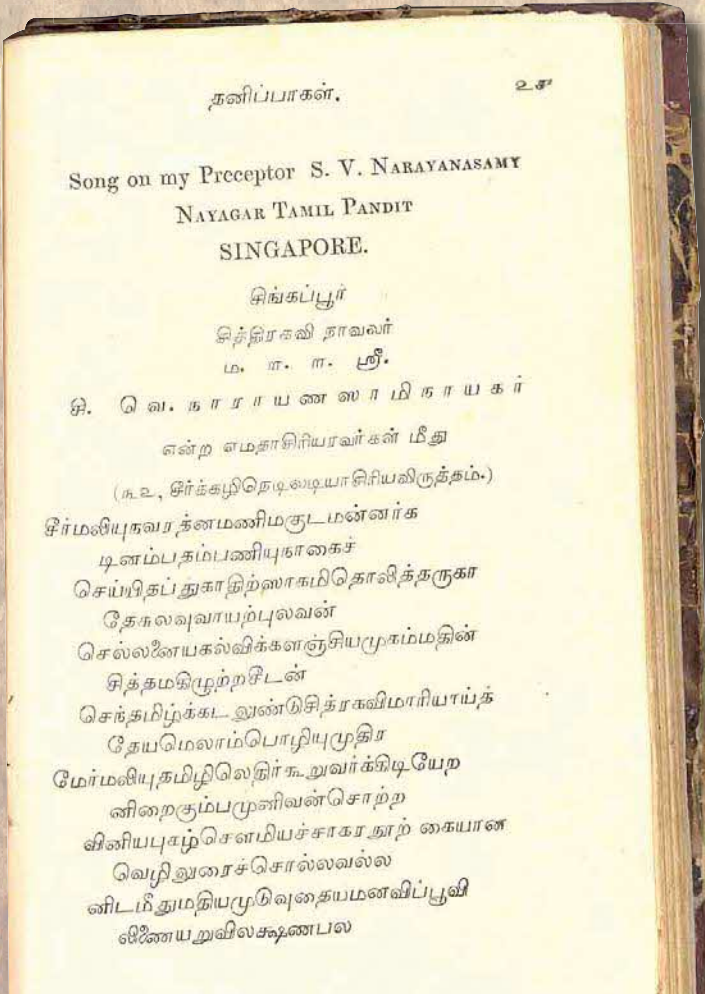 தனிப்பாகள். ௨௪
Song on my Preceptor S. V. NARAYANASAMY
NAYAGAR TAMIL PANDIT
SINGAPORE.
சிங்கப்பூர்
சித்திரகவி நாவலர்
ம. ா. ா. ஸ்ரீ.
சி. வெ. நாராயணஸாமிநாயகர்
என்ற எமதாசிரியரவர்கள் மீது
(௩௨, சீர்க்கழிநெடிலடியாசிரியவிருத்தம்.)
சீர்மலியுநவரத்னமணிமகுடமன்னர்க
டினம்பதம்பணியுநாகைச்
செய்யிதப்துகாதிற்ஸாகமிதொலித்தருகா
தேசுலவுவாயற்புலவன்
செல்லனையகல்விக்களஞ்சியமுகம்மதின்
சித்தமகிழுற்றசீடன்
செந்தமிழ்க்கடலுண்டுசித்ரகவிமாரியாய்த்
தேயமெலாம்பொழியுமுதிர
மேர்மலியுதமிழிலெதிர்கூறுவர்க்கிடியேற
னிறைகும்பமுனிவன்சொற்ற
வினியபுகழ்சௌமியச்சாகரநூற் கையான
வெழிலுரைச்சொல்லவல்ல
னிடமீதுமதியமுடுவுதையமனவிப்பூவி
லிணையறுவிலக்ஷணபல